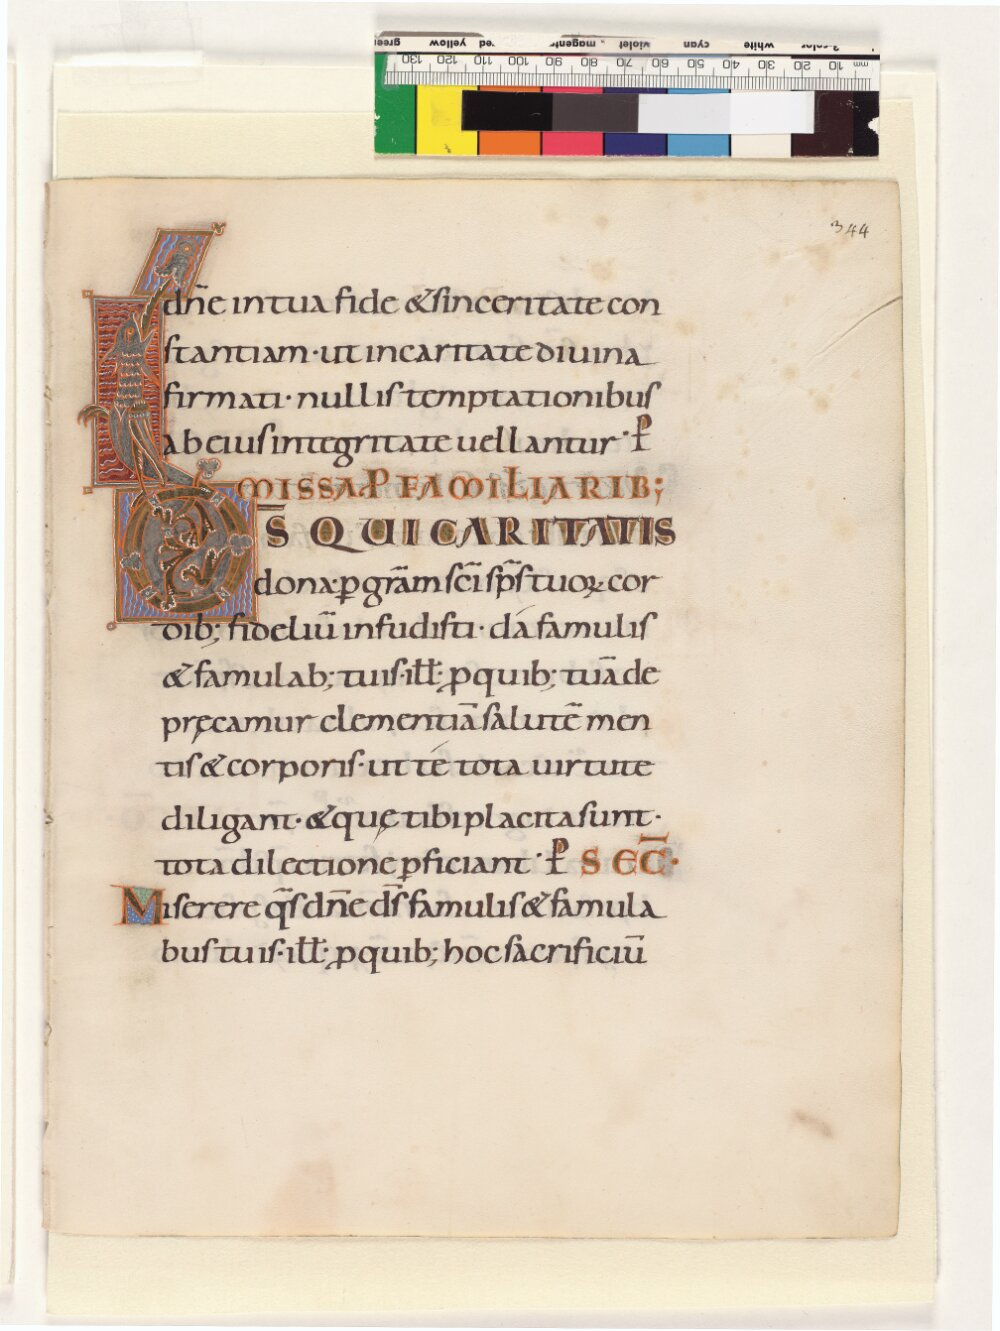 344
dñe in tua fide &sinceritate con
stantiam·ut incaritate diuina
firmati·nullis temptationibus
ab eius integritate uellantur·P̄
MISSA P FAMILIARIB;
D̄S QUI CARITATIS
dona·ꝑ gr̄am sc̄i sp̄s tuoꝝ cor
dib; fideliū infudisti·dá famulis
&famulab; tuis·ill̄·ꝓ quib; tuā de
pręcamur clementiā salutē men
tis&corporis·ut té tota uirtute
diligant·&quę tibi placita sunt·
tota dilectione ꝑficiant·P̄ SEC̄·
Miserere q̄s dñe d̄s famulis&famula
bus tuis·ill̄·ꝓ quib; hoc sacrificiū
green
yellow
red
magenta
violet
cyan
white
3-color
130 120 110 100 90 80 70 60 50 40 30 20 10 mm